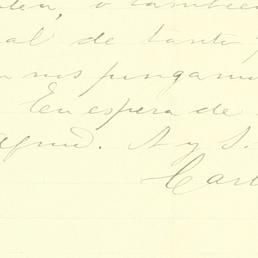 o tambien
al de tanto
nos pongamo
En espera de
afmo. A y S.
Carl